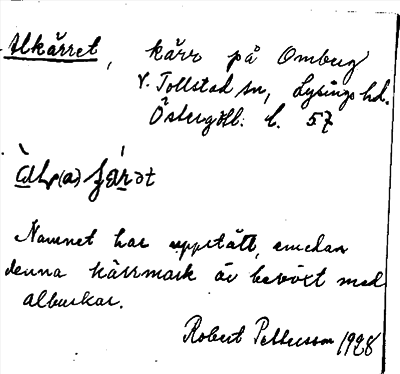 Alkärret, kärr på Omberg
V. Tollstad sn, Lysings hd.
Östergötl. l. 57
Namnet har uppstått, emedan
denna kärrmark är bevext med
albuskar.
Robert Pettersson 1928